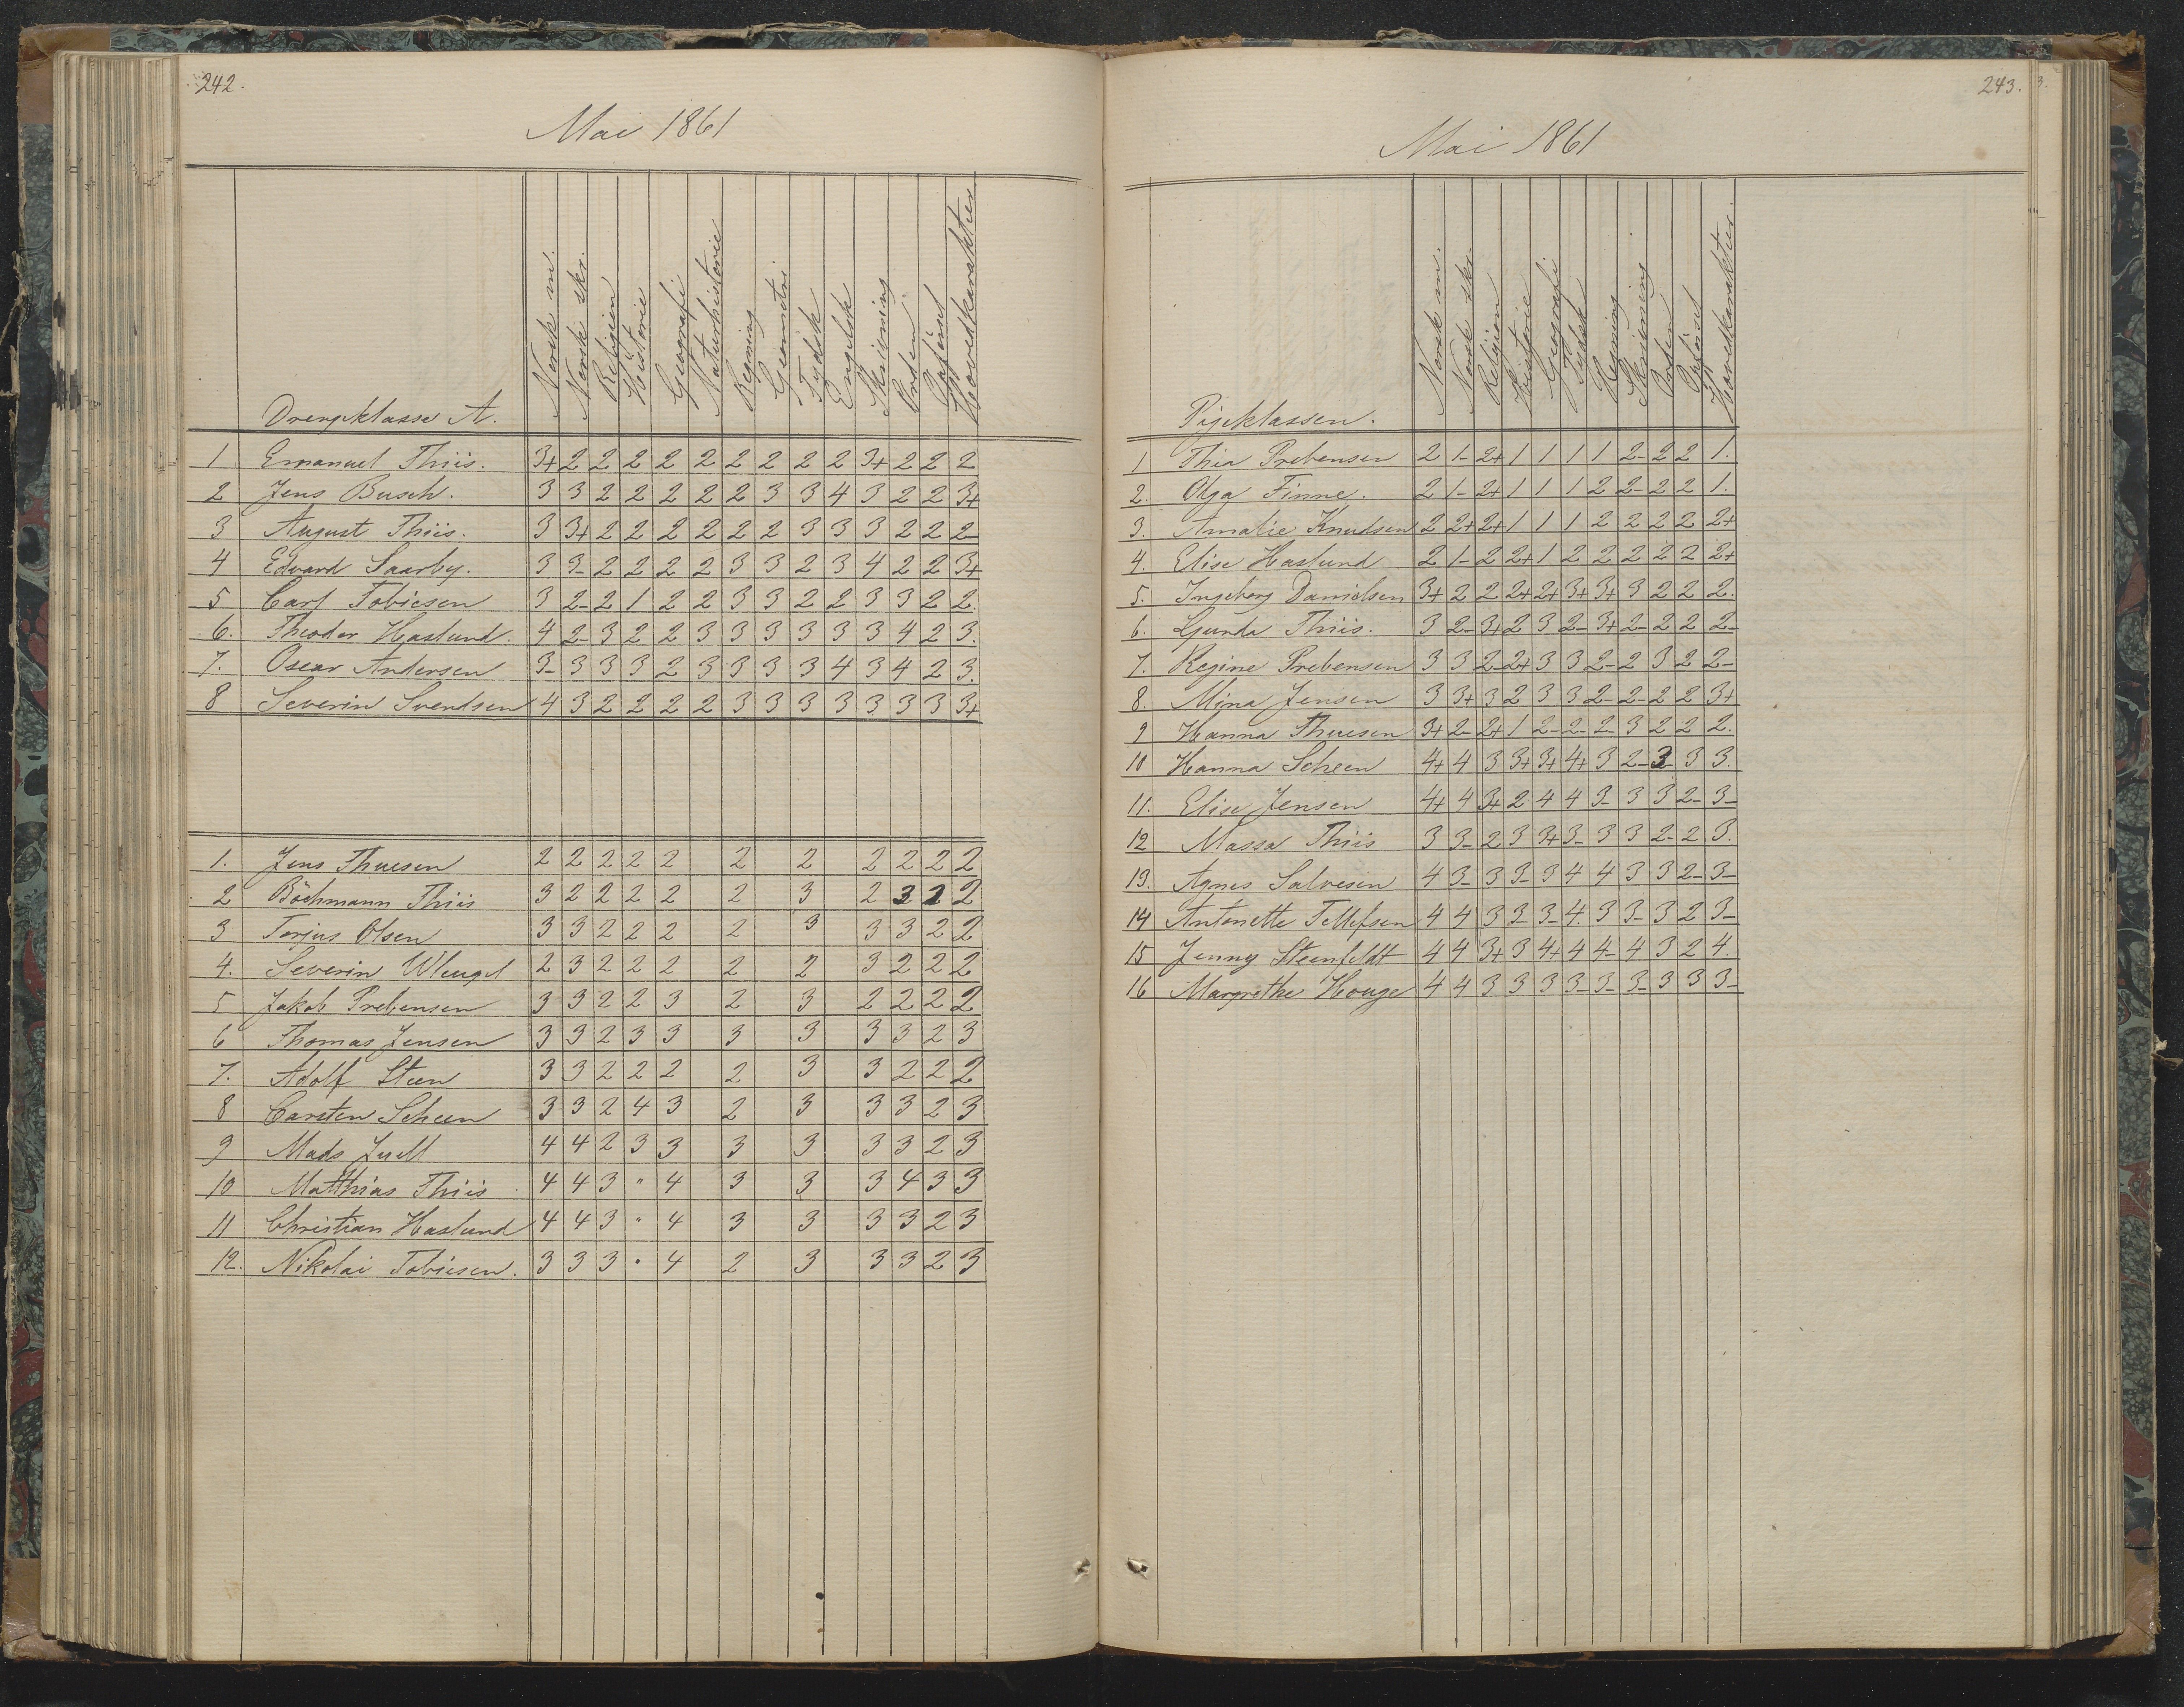 242.
Mai 1861
Drengeklasse A. Norsk m. Norsk skr. Religion Historie Geografi Naturhistorie Regning Geometri Tydsk Engelsk Skrivning Orden Opförsel Hovedkarakter
1 Emanuel Thiis. 3+ 2 2 2 2 2 2 2 2 2 3+ 2 2 2
2 Jens Busch. 3 3 2 2 2 2 2 3 3 4 3 2 2 3+
3 August Thiis. 3 3+ 2 2 2 2 2 2 3 3 3 2 2 2-
4 Edvard Saarby. 3 3- 2 2 2 2 3 3 2 3 4 2 2 3+
5 Carl Tobiesen 3 2- 2 1 2 2 3 3 2 2 3 3 2 2.
6. Theodor Haslund. 4 2- 3 2 2 3 3 3 3 3 3 4 2 3.
7. Oscar Andersen 3- 3 3 3 2 3 3 3 3 4 3 4 2 3.
8 Severin Svendsen 4 3 2 2 2 2 3 3 3 3 3 3 3 3+
1. Jens Thuesen 2 2 2 2 2 2 2 2 2 2 2
2 Böchmann Thiis 3 2 2 2 2 2 3 2 3 2 2
3 Torjus Olsen 3 3 2 2 2 2 3 3 3 2 2
4. Severin Wleugel 2 3 2 2 2 2 2 3 2 2 2
5 Jakob Prebensen 3 3 2 2 3 2 3 2 2 2 2
6 Thomas Jensen 3 3 2 3 3 3 3 3 3 2 3
7. Adolf Steen 3 3 2 2 2 2 3 3 2 2 2
8 Carsten Scheen 3 3 2 4 3 2 3 3 3 2 3
9 Mads Juell 4 4 2 3 3 3 3 3 3 2 3
10 Matthias Thiis 4 4 3 " 4 3 3 3 4 3 3
11 Christian Haslund 4 4 3 " 4 3 3 3 3 2 3
12. Nikolai Tobiesen. 3 3 3 " 4 2 3 3 3 2 3
243.
Mai 1861
Pigeklassen. Norsk m. Norsk skr. Religion Historie Geografi Tydsk Regning Skrivning Orden Opförsel Hovedkarakter.
1 Thia Prebensen 2 1- 2+ 1 1 1 1 2- 2 2 1.
2. Olga Finne. 2 1- 2+ 1 1 1 2 2- 2 2 1.
3. Amalie Knudsen 2 2+ 2+ 1 1 1 2 2 2 2 2+
4. Elise Haslund 2 1- 2 2+ 1 2 2 2 2 2 2+
5. Ingeborg Danielsen 3+ 2 2 2+ 2+ 3+ 3+ 3 2 2 2.
6. Gunda Thiis. 3 2- 3+ 2 3 2- 3+ 2- 2 2 2-
7. Regine Prebensen 3 3 2- 2+ 3 3 2- 2 3 2 2-
8. Mina Jensen 3 3+ 3 2 3 3 2- 2- 2 2 3+
9 Hanna Thuesen 3+ 2- 2+ 1 2- 2- 2- 3 2 2 2.
10 Hanna Scheen 4+ 4 3 3+ 3+ 4+ 3 2- 3- 3 3.
11. Elise Jensen 4+ 4 3+ 2 4 4 3- 3 3 2- 3-
12 Massa Thiis 3 3- 2 3 3+ 3- 3 3 2- 2 3.
13. Agnes Salvesen 4 3- 3 3- 3 4 4 3 3 2- 3-
14 Antonette Tellefsen 4 4 3 3- 3- 4. 3 3- 3 2 3-
15 Jenny Steenfeldt 4 4 3+ 3 4+ 4 4- 4 3 2 4.
16 Margrethe Houge 4 4 3 3 3 3- 3- 3- 3 3 3-